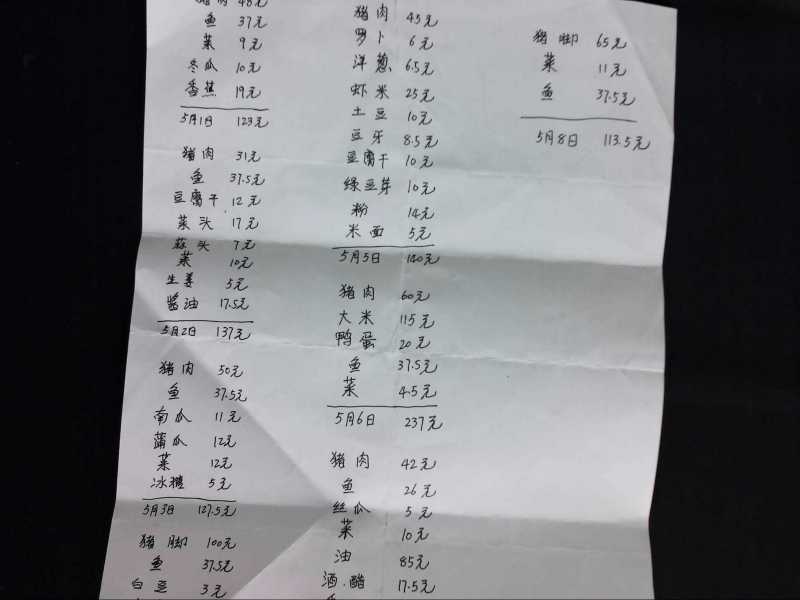 猪肉 48元
鱼 37元
菜 9元
冬瓜 10元
香蕉 19元
5月1日 123元
猪肉 31元
鱼 37.5元
豆腐干 12元
菜头 17元
蒜头 7元
菜 10元
生姜 5元
酱油 17.5元
5月2日 137元
猪肉 50元
鱼 37.5元
南瓜 11元
蒲瓜 12元
菜 12元
冰糖 5元
5月3日 127.5元
猪脚 100元
鱼 37.5元
白豆 3元
猪肉 45元
萝卜 6元
洋葱 6.5元
虾米 25元
土豆 10元
豆牙 8.5元
豆腐干 10元
绿豆芽 10元
粉 14元
米面 5元
5月5日 140元
猪肉 60元
大米 115元
鸭蛋 20元
鱼 37.5元
菜 4.5元
5月6日 237元
猪肉 42元
鱼 26元
丝瓜 5元
菜 10元
油 85元
酒.醋 17.5元
猪脚 65元
菜 11元
鱼 37.5元
5月8日 113.5元